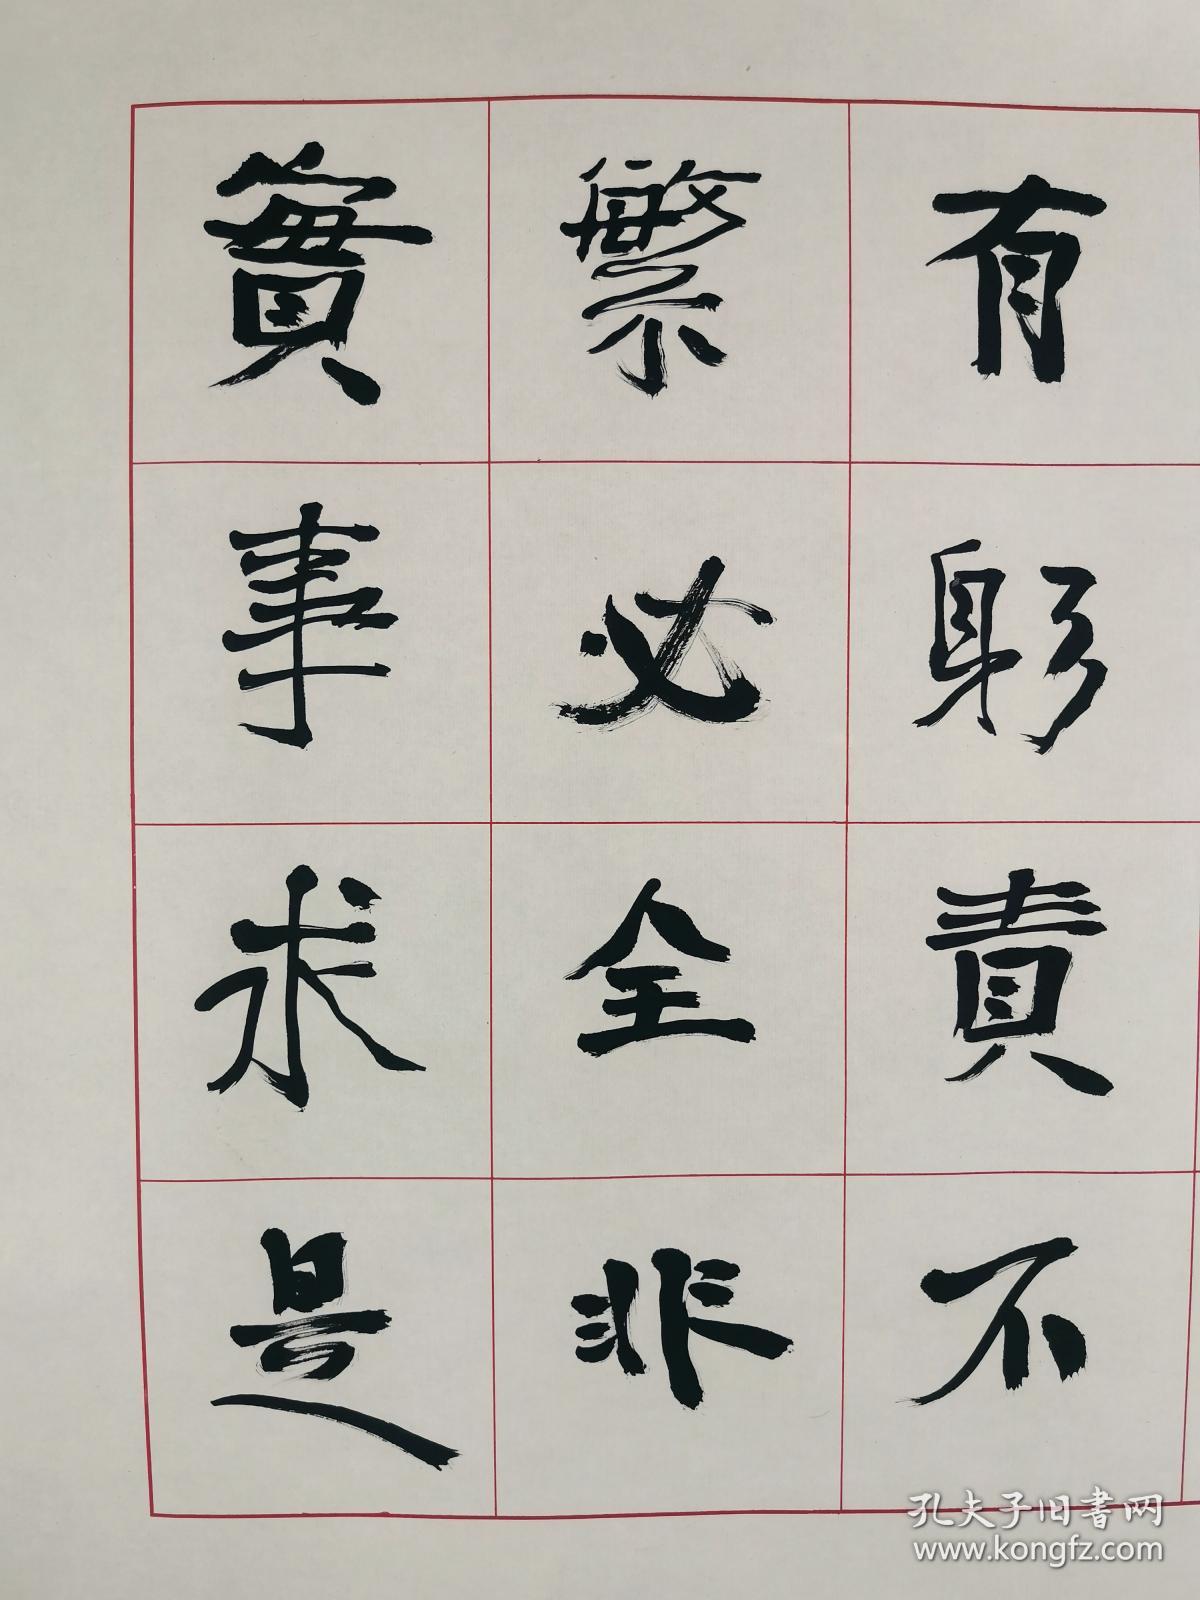 有躬責不
繁必全非
實事求是
孔夫子旧书网
www.kongfz.com